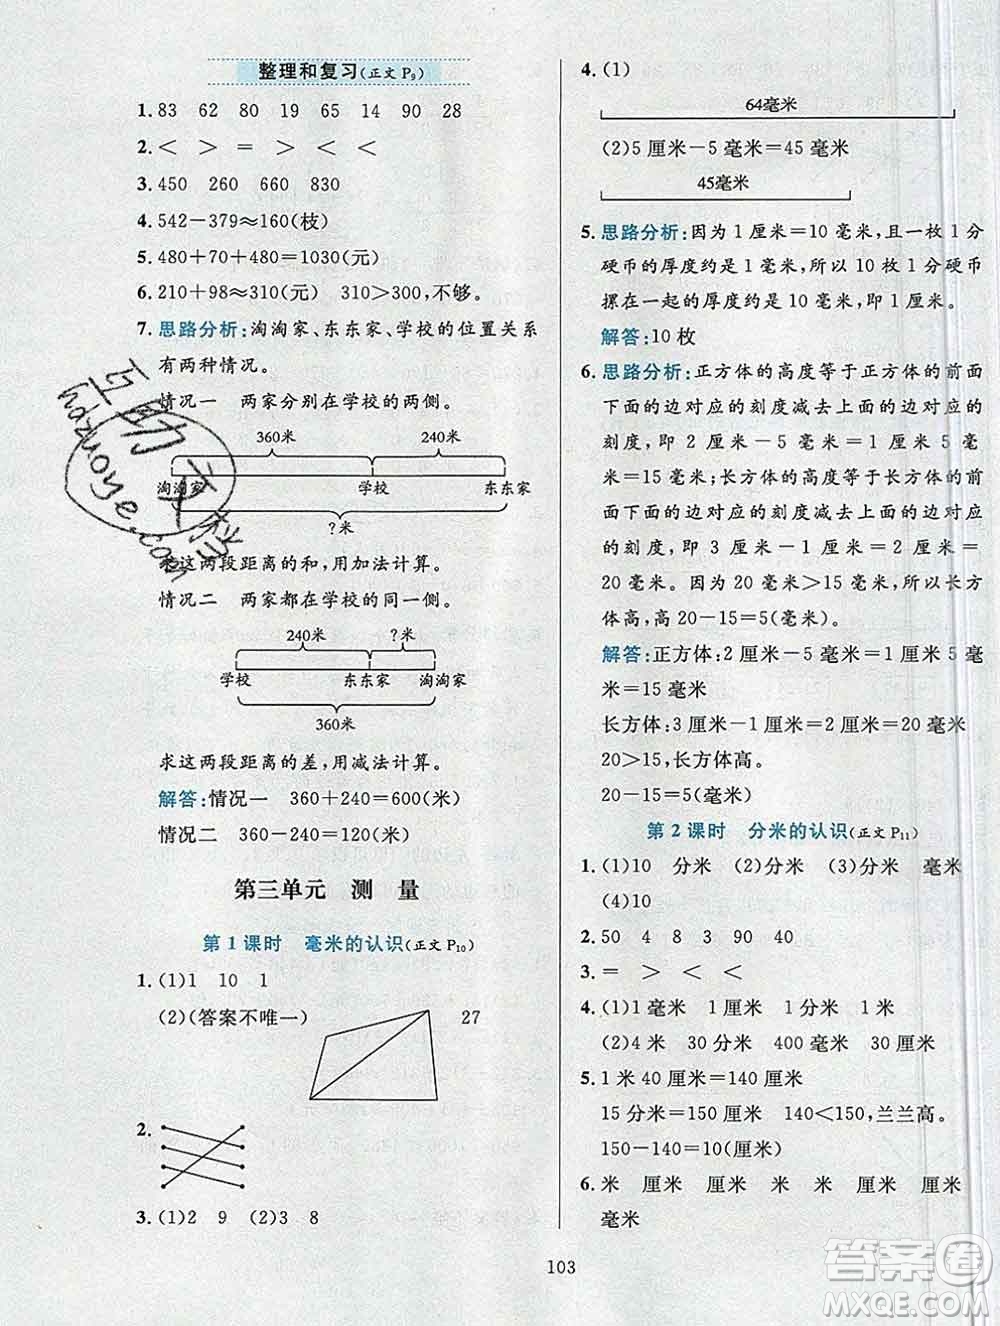 整理和复习(正文 P₉)
1. 83 62 80 19 65 14 90 28
2. < > = > < < <
3. 450 260 660 830
4. 542－379≈160(枝)
5. 480＋70＋480＝1030(元)
6. 210＋98≈310(元) 310>300,不够。
7. 思路分析:淘淘家、东东家、学校的位置关系
有两种情况。
情况一 两家分别在学校的两侧。
360米 240米
淘淘家 学校 东东家
?米
求这两段距离的和,用加法计算。
情况二 两家都在学校的同一侧。
240米 ?米
学校 东东家 淘淘家
360米
求这两段距离的差,用减法计算。
解答:情况一 360＋240＝600(米)
情况二 360－240＝120(米)
第三单元 测 量
第 1 课时 毫米的认识(正文 P₁₀)
1. (1)1 10 1
(2)(答案不唯一) 27
2.
3. (1)2 9 (2)3 8
4. (1)
64毫米
(2)5 厘米－5 毫米＝45 毫米
45毫米
5. 思路分析:因为 1 厘米＝10 毫米,且一枚 1 分
硬币的厚度约是 1 毫米,所以 10 枚 1 分硬币
摞在一起的厚度约是 10 毫米,即 1 厘米。
解答:10 枚
6. 思路分析:正方体的高度等于正方体的前面
下面的边对应的刻度减去上面的边对应的
刻度,即 2 厘米－5 毫米＝1 厘米 5 毫米＝
15 毫米;长方体的高度等于长方体的前面
前面下面的边对应的刻度减去上面的边对
应的刻度,即 3 厘米－1 厘米＝2 厘米＝
20 毫米。因为 20 毫米>15 毫米,所以长方
体高,高 20－15＝5(毫米)
解答:正方体:2 厘米－5 毫米＝1 厘米 5 毫
米＝15 毫米
长方体:3 厘米－1 厘米＝2 厘米＝20 毫米
20>15,长方体高。
20－15＝5(毫米)
第 2 课时 分米的认识(正文 P₁₁)
1. (1)10 分米 (2)分米 (3)分米 毫米
(4)10
2. 50 4 8 3 90 40
3. = > < <
4. (1)1 毫米 1 厘米 1 分米 1 米
(2)4 米 30 分米 400 毫米 30 厘米
5. 1 米 40 厘米＝140 厘米
15 分米＝150 厘米 140<150,兰兰高。
150－140＝10(厘米)
6. 米 厘米 厘米 米 米 厘米 厘米
毫米
103
互助文档
hdzuoye.com
答案圈
MXQE.COM